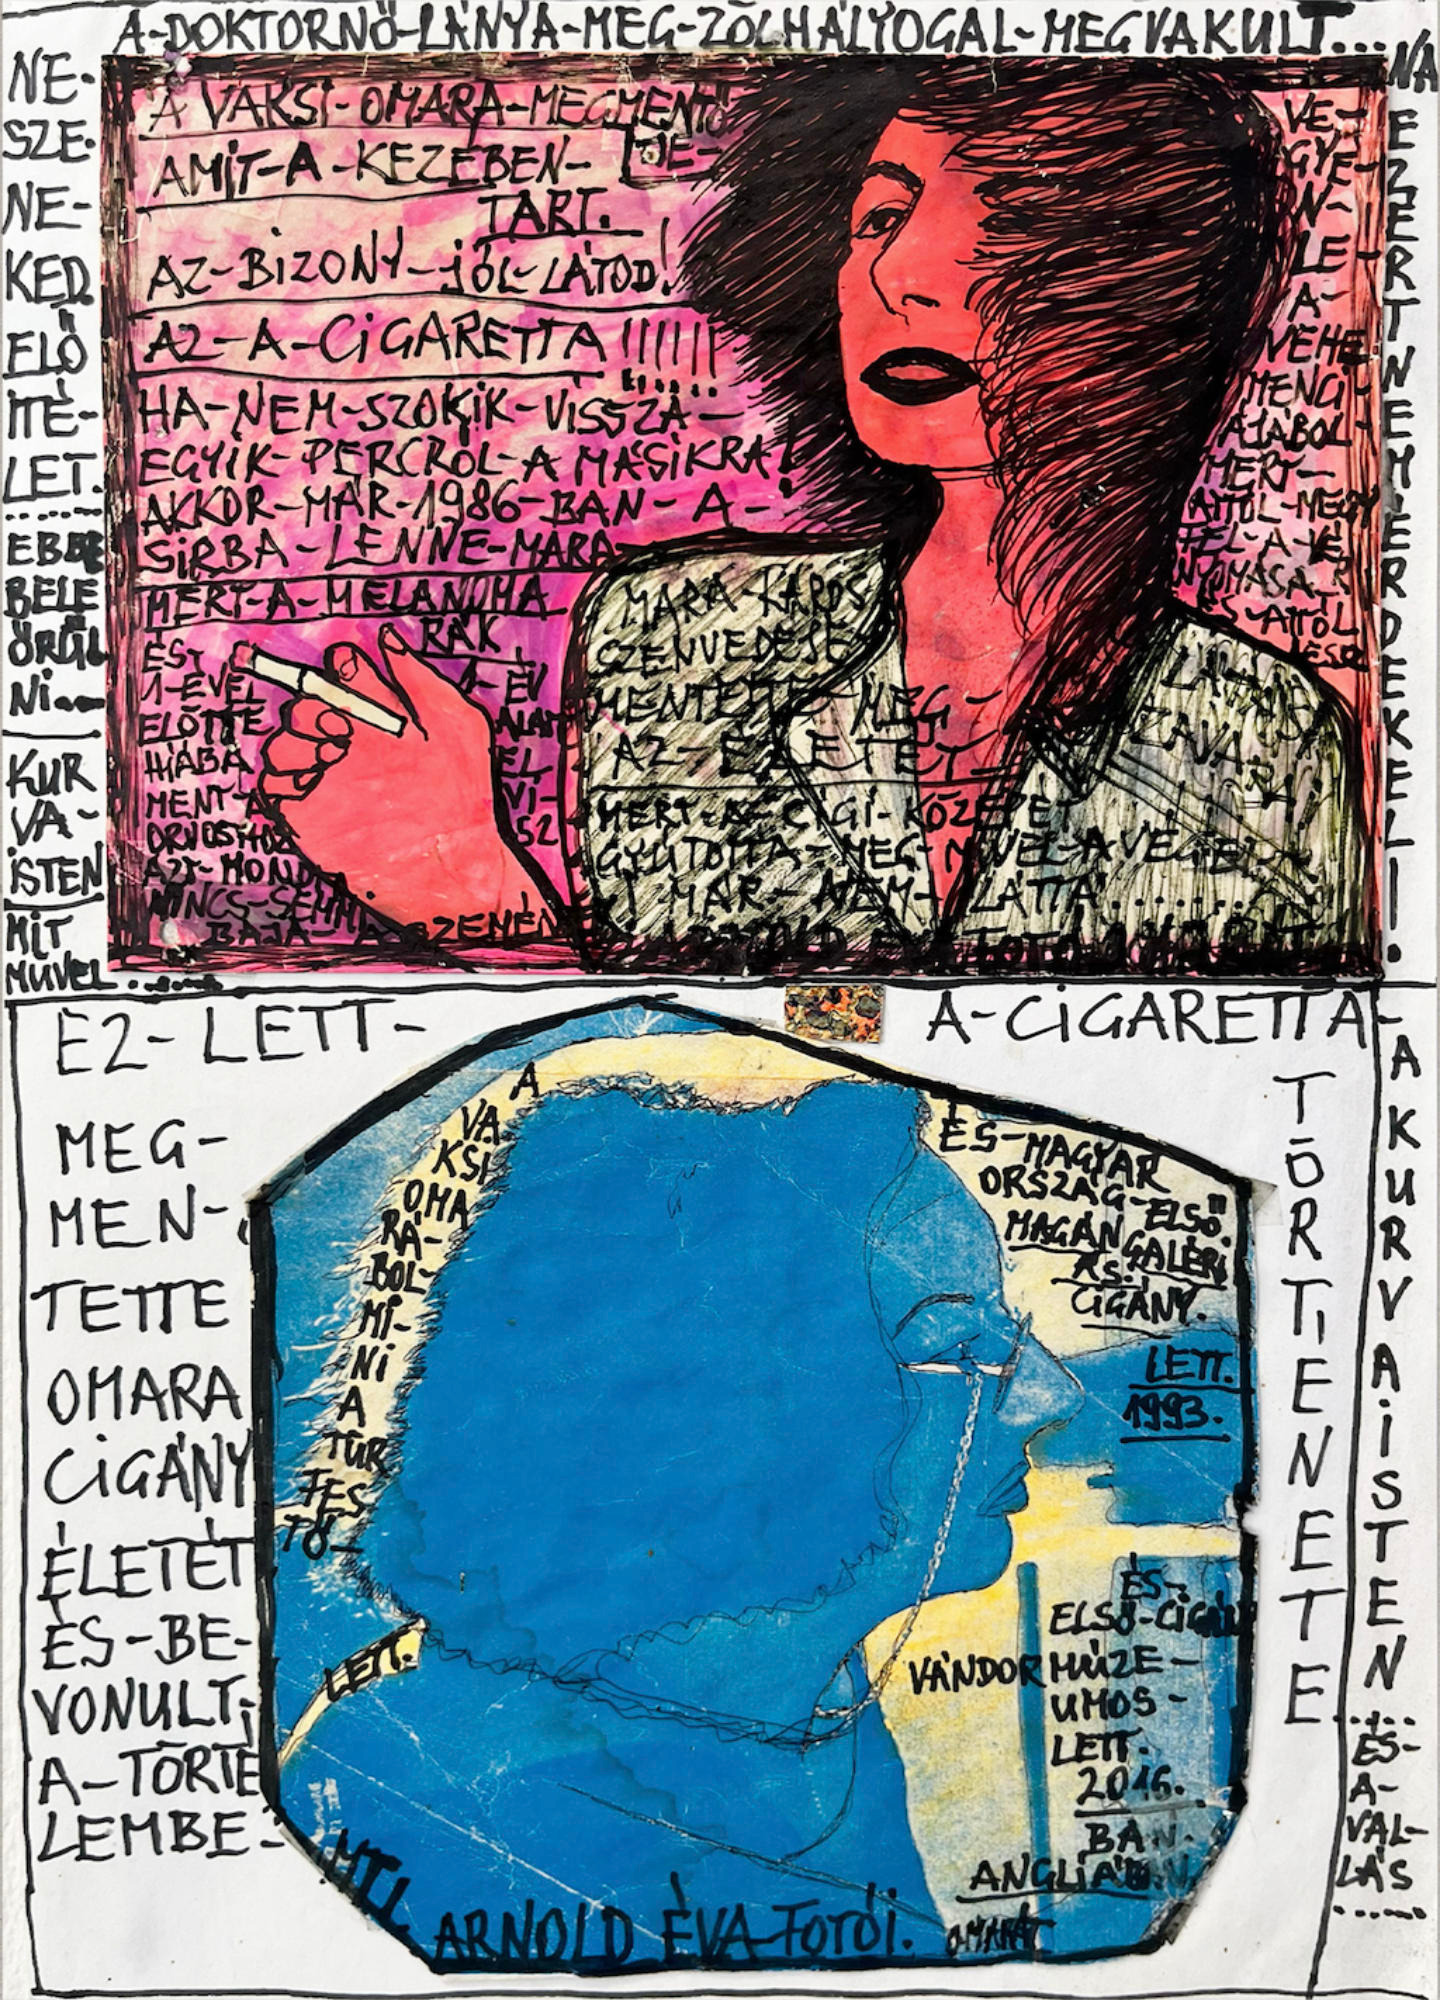 A-DOKTORNŐ-LÁNYA-MEG-ZÖLHÁLYOGAL-MEGVAKULT...
NE-
SZE-
NE-
KED.
ELŐ
ITÉ-
LET.
BELE
ŐRÜL
Ni...
KUR
VA-
iSTEN
MiT
MUVEL......
A VAKSi-OMARA-MEGMENTŐ
JE-
AMiT-A-KEZÉBEN-
TART.
AZ-BiZONY-JÓL-LÁTOD!
AZ-A-CiGARETTA!!!!!!
HA-NEM-SZOKiK-ViSSZA-
EGYiK-PERCRŐL-A MÁSiKRA!
AKKOR-MÁR-1986-BAN-A-
SiRBA-LENNE-MARA
MERT-A-MELANOMA
RÁK
1-ÉV
ALAT
EL-
Vi-
SZ
ÉS
1-ÉVEL
ELŐTTE
HiÁBA
MENT-A
ORVOSHOZ
AZT-MOND
NiNCS-SEMMi
BAJA-A-SZEMÉN
MARA-KÁROS
SZENVEDÉSE
MENTETTE-MEG-
AZ-ÉLETÉT
MERT-A-CiGi-KÖZEPÉT
GYÚTOTTA-MEG-MiVEL-A VÉGÉT-
MÁR-NEM-LÁTTA.......
VE-
GYÉ-
N-
LE-
A-
VÉHE-
MENCi-
ÁJÁBÓL-
MERT-
ATTÓL-MEGY
FEL-A-VÉR
NYOMÁSA-
ÉS-ATTÓL
LÁTÁSi
ZAVAR
NA
EZÉRTNEMÉRDEKEL!
EZ-LETT-
A-CiGARETTA-
TÖRTÉNETE
MEG-
MEN-
TETTE
OMARA
CiGÁNY
ÉLETÉT
ÉS-BE-
VONULT
A-TÖRTÉ
LEMBE-
A
VA
KSi
OMA
RÁ-
BOL-
Mi-
Ni
A
TŰR
FES
TŐ-
LETT.
ÉS-MAGYAR
ORSZÁG-ELSŐ.
MAGÁN GALÉRi
CiGÁNY.
LETT.
1993.
ÉS-
ELSŐ-CiGÁNY
VÁNDOR MÚZE-
UMOS-
LETT.
2016.
BAN.
ANGLiÁBAN.
ARNOLD ÉVA-FOTÓi.
AKURVAiSTEN
.....
ÉS-
A-
VAL-
LÁS
......